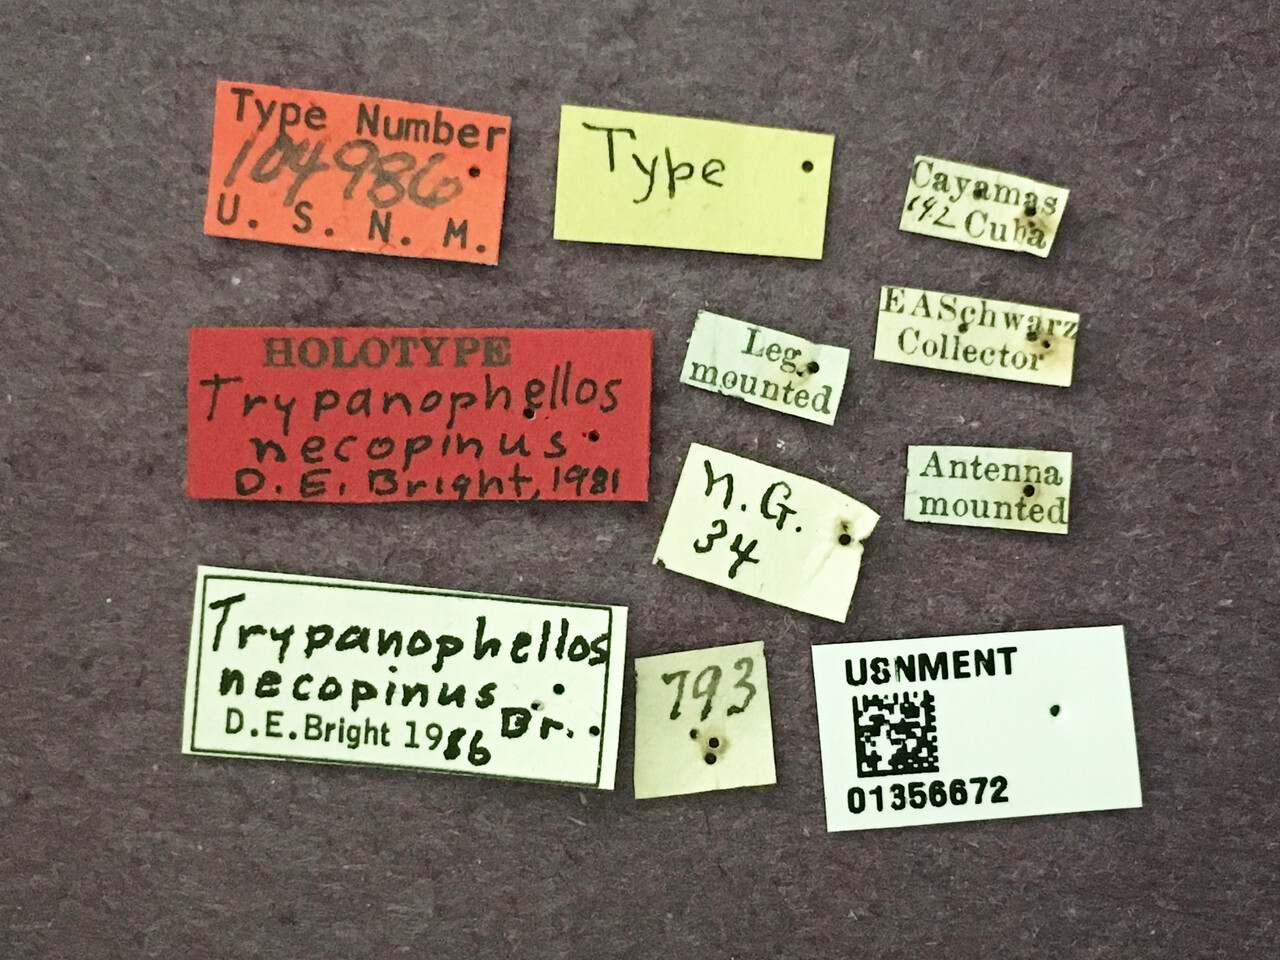 Type Number
104986
U. S. N. M.
Type
Cayamas
192 Cuba
EASchwarz
Collector
HOLOTYPE
Trypanophellos
necopinus
D. E. Bright, 1981
Leg
mounted
n.G.
34
Antenna
mounted
Trypanophellos
necopinus Br.
D.E.Bright 1986
793
USNMENT
01356672